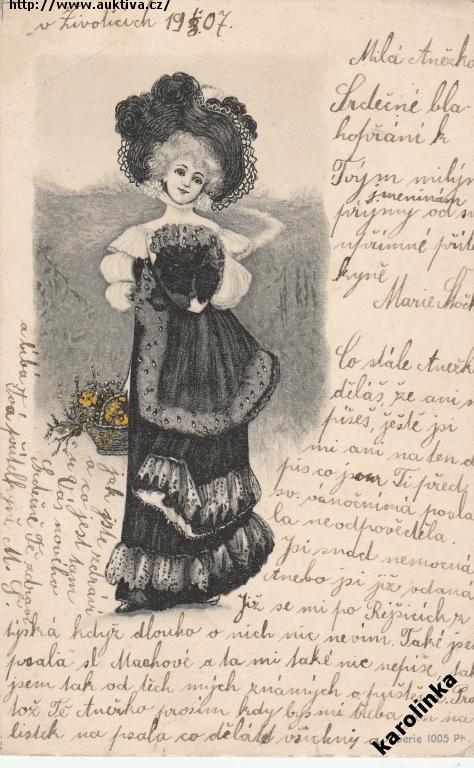 http://www.auktiva.cz/
v Životicích 19 7/3 07.
Milá Anežko
Srdečné bla
hopřání k
Tvým milým
jmeninám
přijmy od
upřímné příte
kyně
Marie
Co stále Anežko
děláš, že ani
píšeš, ještě jsi
mi ani na ten d
pis co jsem Ti před
sv. vánočníma posla
la neodpověděla.
Jsi snad nemocná
Anebo jsi již vdaná
Již se mi po Repšicích z
týská když dlouho o nich nic nevím. Také jse
psala sl. Machové a ta mi také nic nepíše, tak
jsem tak od těch mých známých a Pro
tož Tě Anežko prosím kdy bys mi třeba na
lístek na psala co děláte všichny a
jak jste zdrávi
a co jest tam
u Vás nového
Srdečně Tě zdraví
a líbá tá
Tva přítelkyně M. G.
karolinka
Serie 1005 Ph.